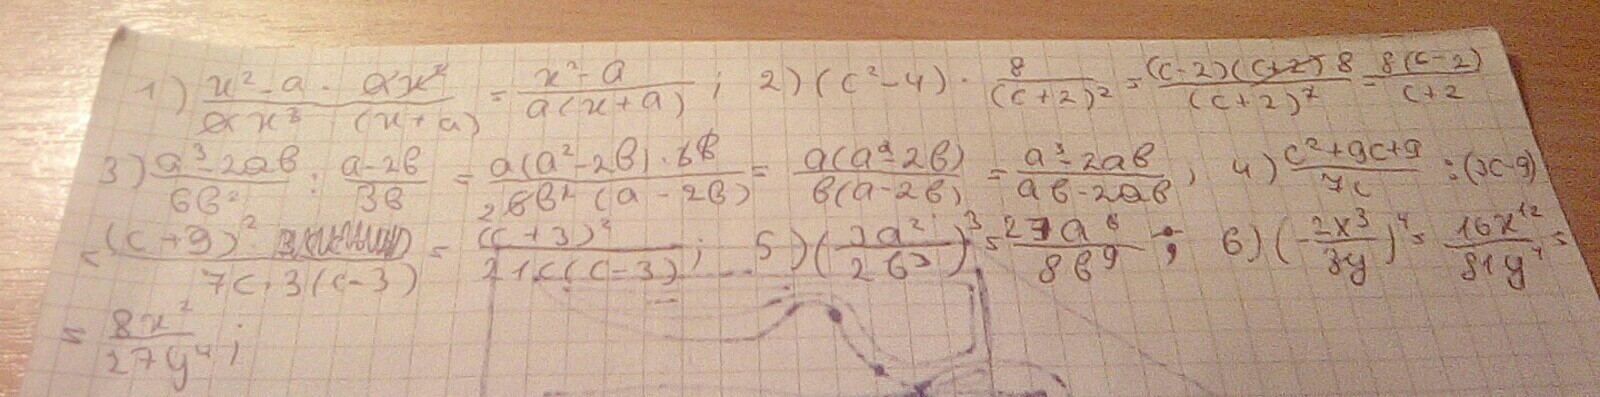 1) (x² - a)/(ax³) · (ax²)/(x+a) = (x² - a)/(a(x+a)); 2) (c² - 4) · 8/(c+2)² = ((c-2)(c+2)8)/(c+2)² = 8(c-2)/(c+2)
3) (a³ - 2ab)/(6b²) : (a-2b)/(3b) = (a(a² - 2b) · 3b)/(6b²(a - 2b)) = a(a² - 2b)/(b(a-2b)) = (a³ - 2ab)/(ab - 2ab); 4) (c² + 9c + 9)/(7c) : (3c-9)
= (c+9)²/(7c · 3(c-3)) = (c+3)²/(21c(c-3)); 5) (3a²/2b³)³ = 27a⁶/8b⁹; 6) (-2x³/3y)⁴ = 16x¹²/81y⁴ =
= 8x²/27y⁴;